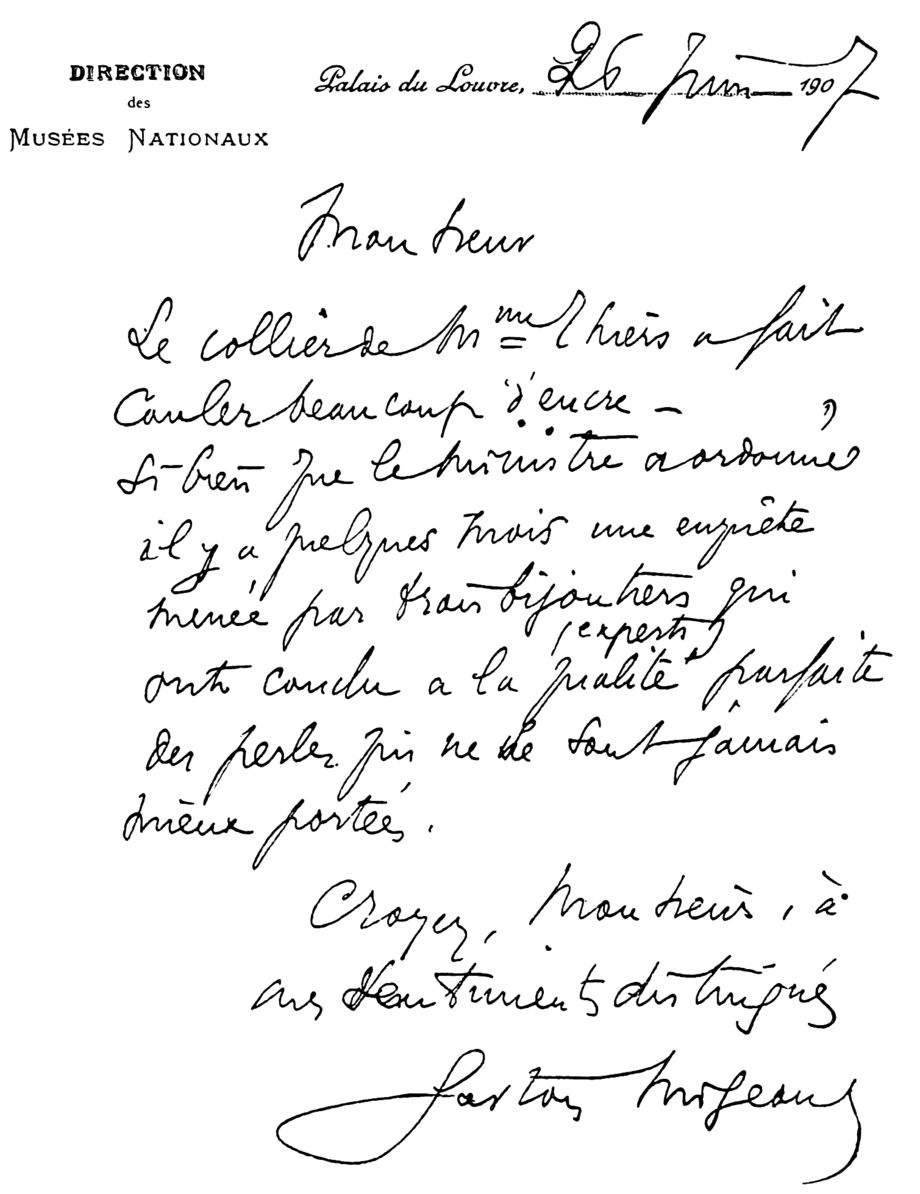 DIRECTION
des
MUSÉES NATIONAUX
Palais du Louvre, 26 Juin 1907
Monsieur
Le collier de Mme Thiers a fait
couler beaucoup d'encre —
si bien que le ministre a ordonné
il y a quelques mois une enquête
menée par trois bijoutiers qui
(experts)
ont conclu a la qualité parfaite
des perles qui ne se sont jamais
mieux portées.
Croyez, Monsieur, à
mes sentiments distingués
Gaston Migeon